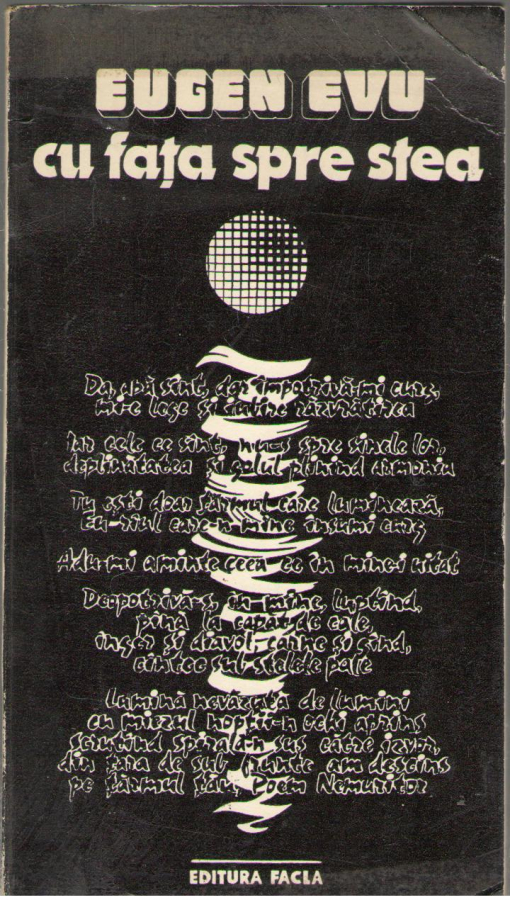 EUGEN EVU
cu fața spre stea
Da, apă sînt, dar împotrivă-mi curg,
mi-e lege și iubire răzvrătirea
Iar cele ce sînt, nu-s spre sinele lor,
deplinătatea și golul plinind armonia
Tu ești doar țărmul care luminează,
Eu-rîul care-n mine însumi curg
Adu-mi aminte ceea ce în mine-i uitat
Deopotrivă-s, în mine, luptînd,
pînă la capăt de cale,
înger și diavol, carne și gînd,
cîntec sub stelele pale
Lumină nevăzută de lumini
cu miezul nopții-n ochi aprins
scrutînd spirala-n sus către izvor,
din țara de sub frunte am descins
pe țărmul tău, Poem Nemuritor
EDITURA FACLA